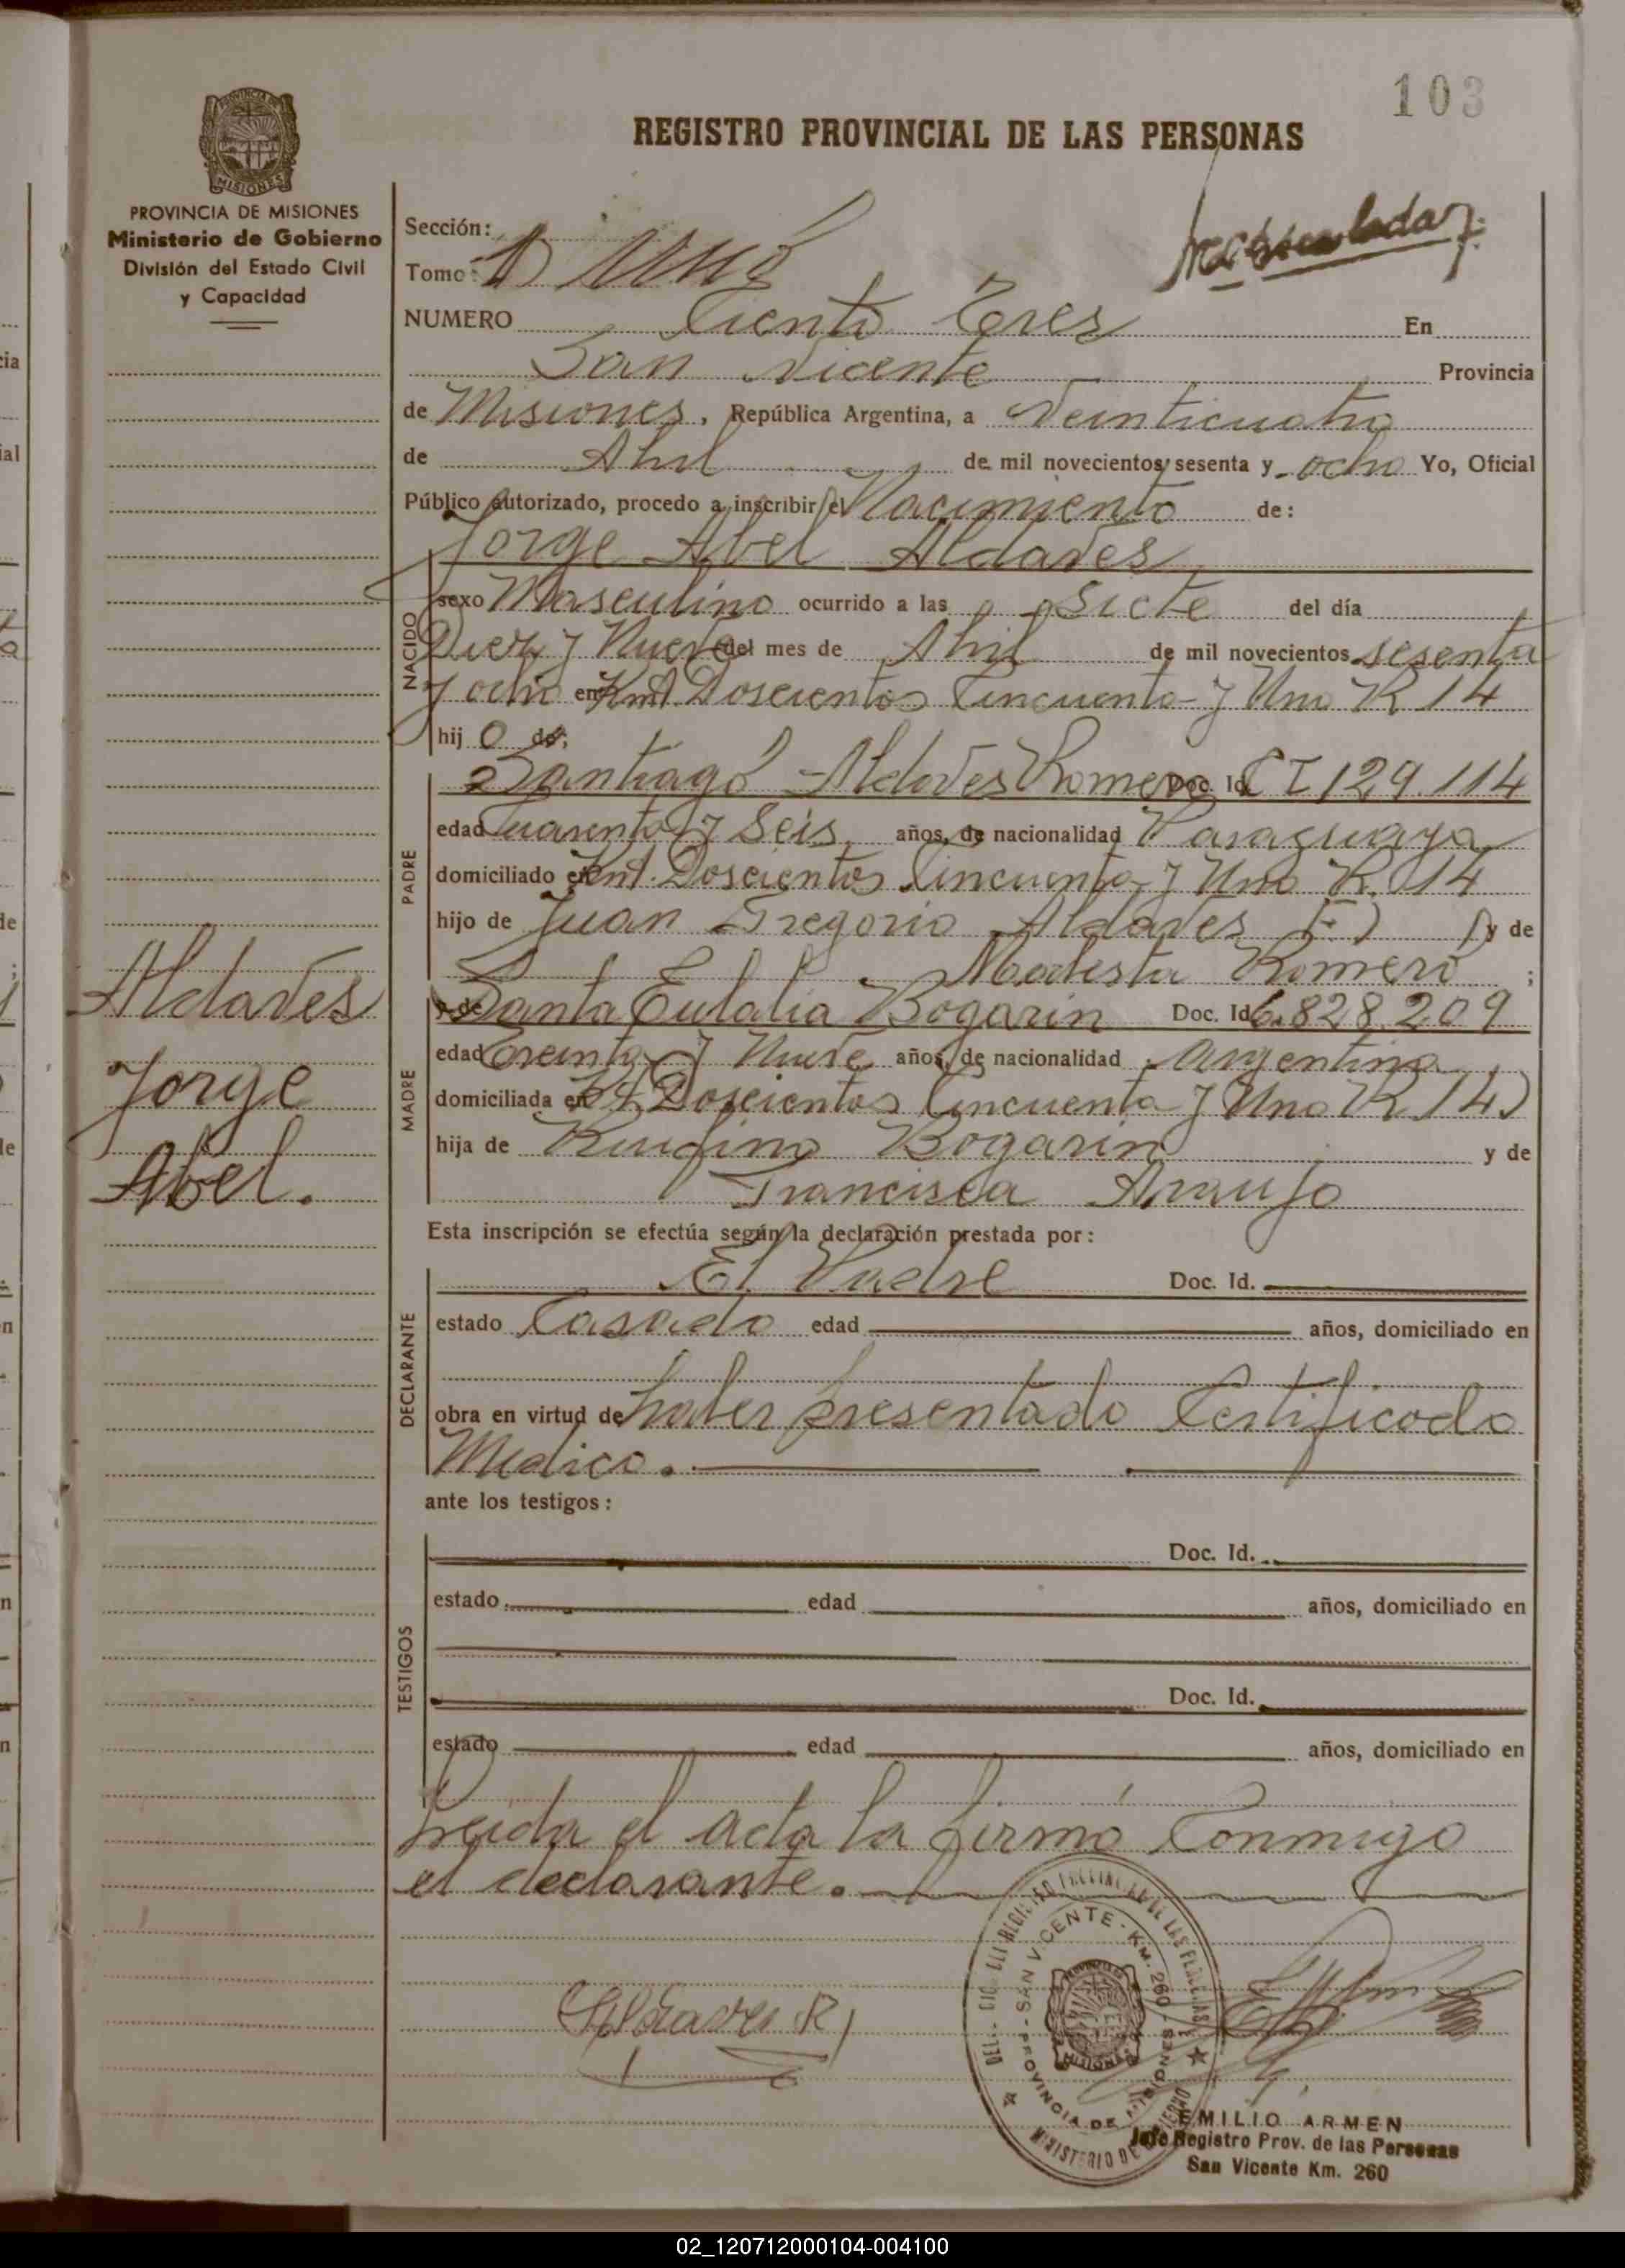 103
REGISTRO PROVINCIAL DE LAS PERSONAS
PROVINCIA DE MISIONES
MISIONES
PROVINCIA DE MISIONES
Ministerio de Gobierno
División del Estado Civil
y Capacidad
Sección:
Tomo: 1) Uno
NUMERO Ciento Tres En
San Vicente Provincia
de Misiones, República Argentina, a Veinticuatro
de Abril de mil novecientos sesenta y ocho Yo, Oficial
Público autorizado, procedo a inscribir el Nacimiento de:
Jorge Abel Aldaves
NACIDO
sexo Masculino ocurrido a las Siete del día
Diez y Nueve del mes de Abril de mil novecientos sesenta
y ocho en Kmt. Doscientos Cincuenta y Uno R 14
hij o de;
PADRE
Santiago Aldaves Romero Doc. Id. CI 129.114
edad Cuarenta y Seis años, de nacionalidad Paraguaya
domiciliado en Kmt. Doscientos Cincuenta y Uno R. 14
hijo de Juan Gregorio Aldaves (F) y de
Modesta Romero ;
MADRE
y de Santa Eulalia Bogarin Doc. Id 6.828.209
edad Treinta y Nueve años, de nacionalidad Argentina
domiciliada en Kt. Doscientos Cincuenta y Uno R 14)
hija de Rufino Bogarin y de
Francisca Araujo
Aldaves
Jorge
Abel.
Esta inscripción se efectúa según la declaración prestada por:
DECLARANTE
El Padre Doc. Id.
estado Casado edad años, domiciliado en
obra en virtud de haber presentado Certificado
Medico.
ante los testigos:
TESTIGOS
Doc. Id.
estado edad años, domiciliado en
Doc. Id.
estado edad años, domiciliado en
Leida el acta la firmó Conmigo
el declarante.
Aldaves R
SAN VICENTE - KM. 260 - PROVINCIA DE MISIONES
MISIONES
EMILIO ARMEN
Jefe Registro Prov. de las Personas
San Vicente Km. 260
02_120712000104-004100